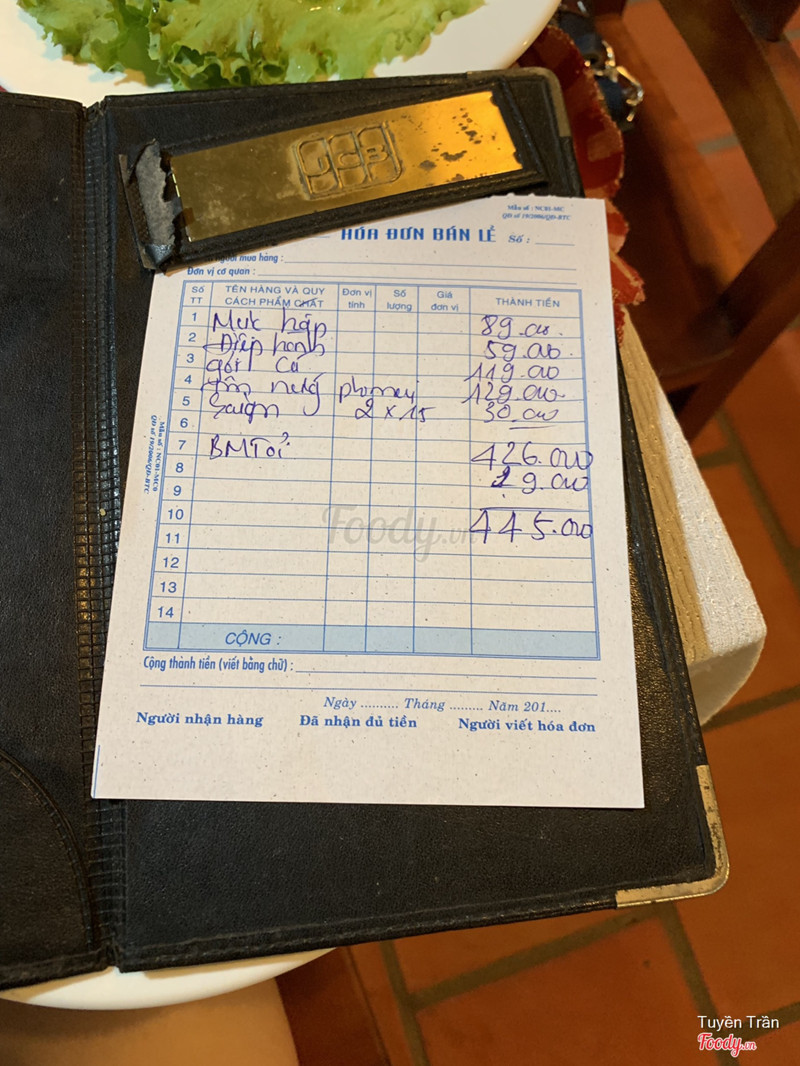 JCB
Mẫu số : NCB1-MC
QĐ số 19/2006/QĐ-BTC
HÓA ĐƠN BÁN LẺ Số :
người mua hàng :
Đơn vị cơ quan :
Số TT TÊN HÀNG VÀ QUY CÁCH PHẨM CHẤT Đơn vị tính Số lượng Giá đơn vị THÀNH TIỀN
1 Mực hấp 89.000
2 Điệp hành 59.000
3 gỏi Cá 119.000
4 nướng phomai 129.000
5 Saigon 2 x 15 30.000
6
7 BMTỏi 426.000
8 29.000
9
10 445.000
11
12
13
14
CỘNG :
Cộng thành tiền (viết bằng chữ) :
Ngày .......... Tháng ......... Năm 201....
Người nhận hàng Đã nhận đủ tiền Người viết hóa đơn
Mẫu số : NCB1-MC0
QĐ số 19/2006/QĐ-BTC
Foody.vn
Tuyền Trần
Foody.vn